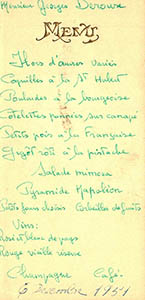 Monsieur Georges Derouve
MENU
Hors d'œuvres variés
Coquilles à la St Hubert
Poulardes à la bourgeoise
Côtelettes panées sur canapé
Petits pois à la Française
Gigot rôti à la pistache
Salade mimosa
Pyramide Napoléon
Petits fours choisis Corbeilles de fruits
Vins:
Rosé et blanc de pays
Rouge vieille réserve
Champagne Café.
6 Décembre 1951